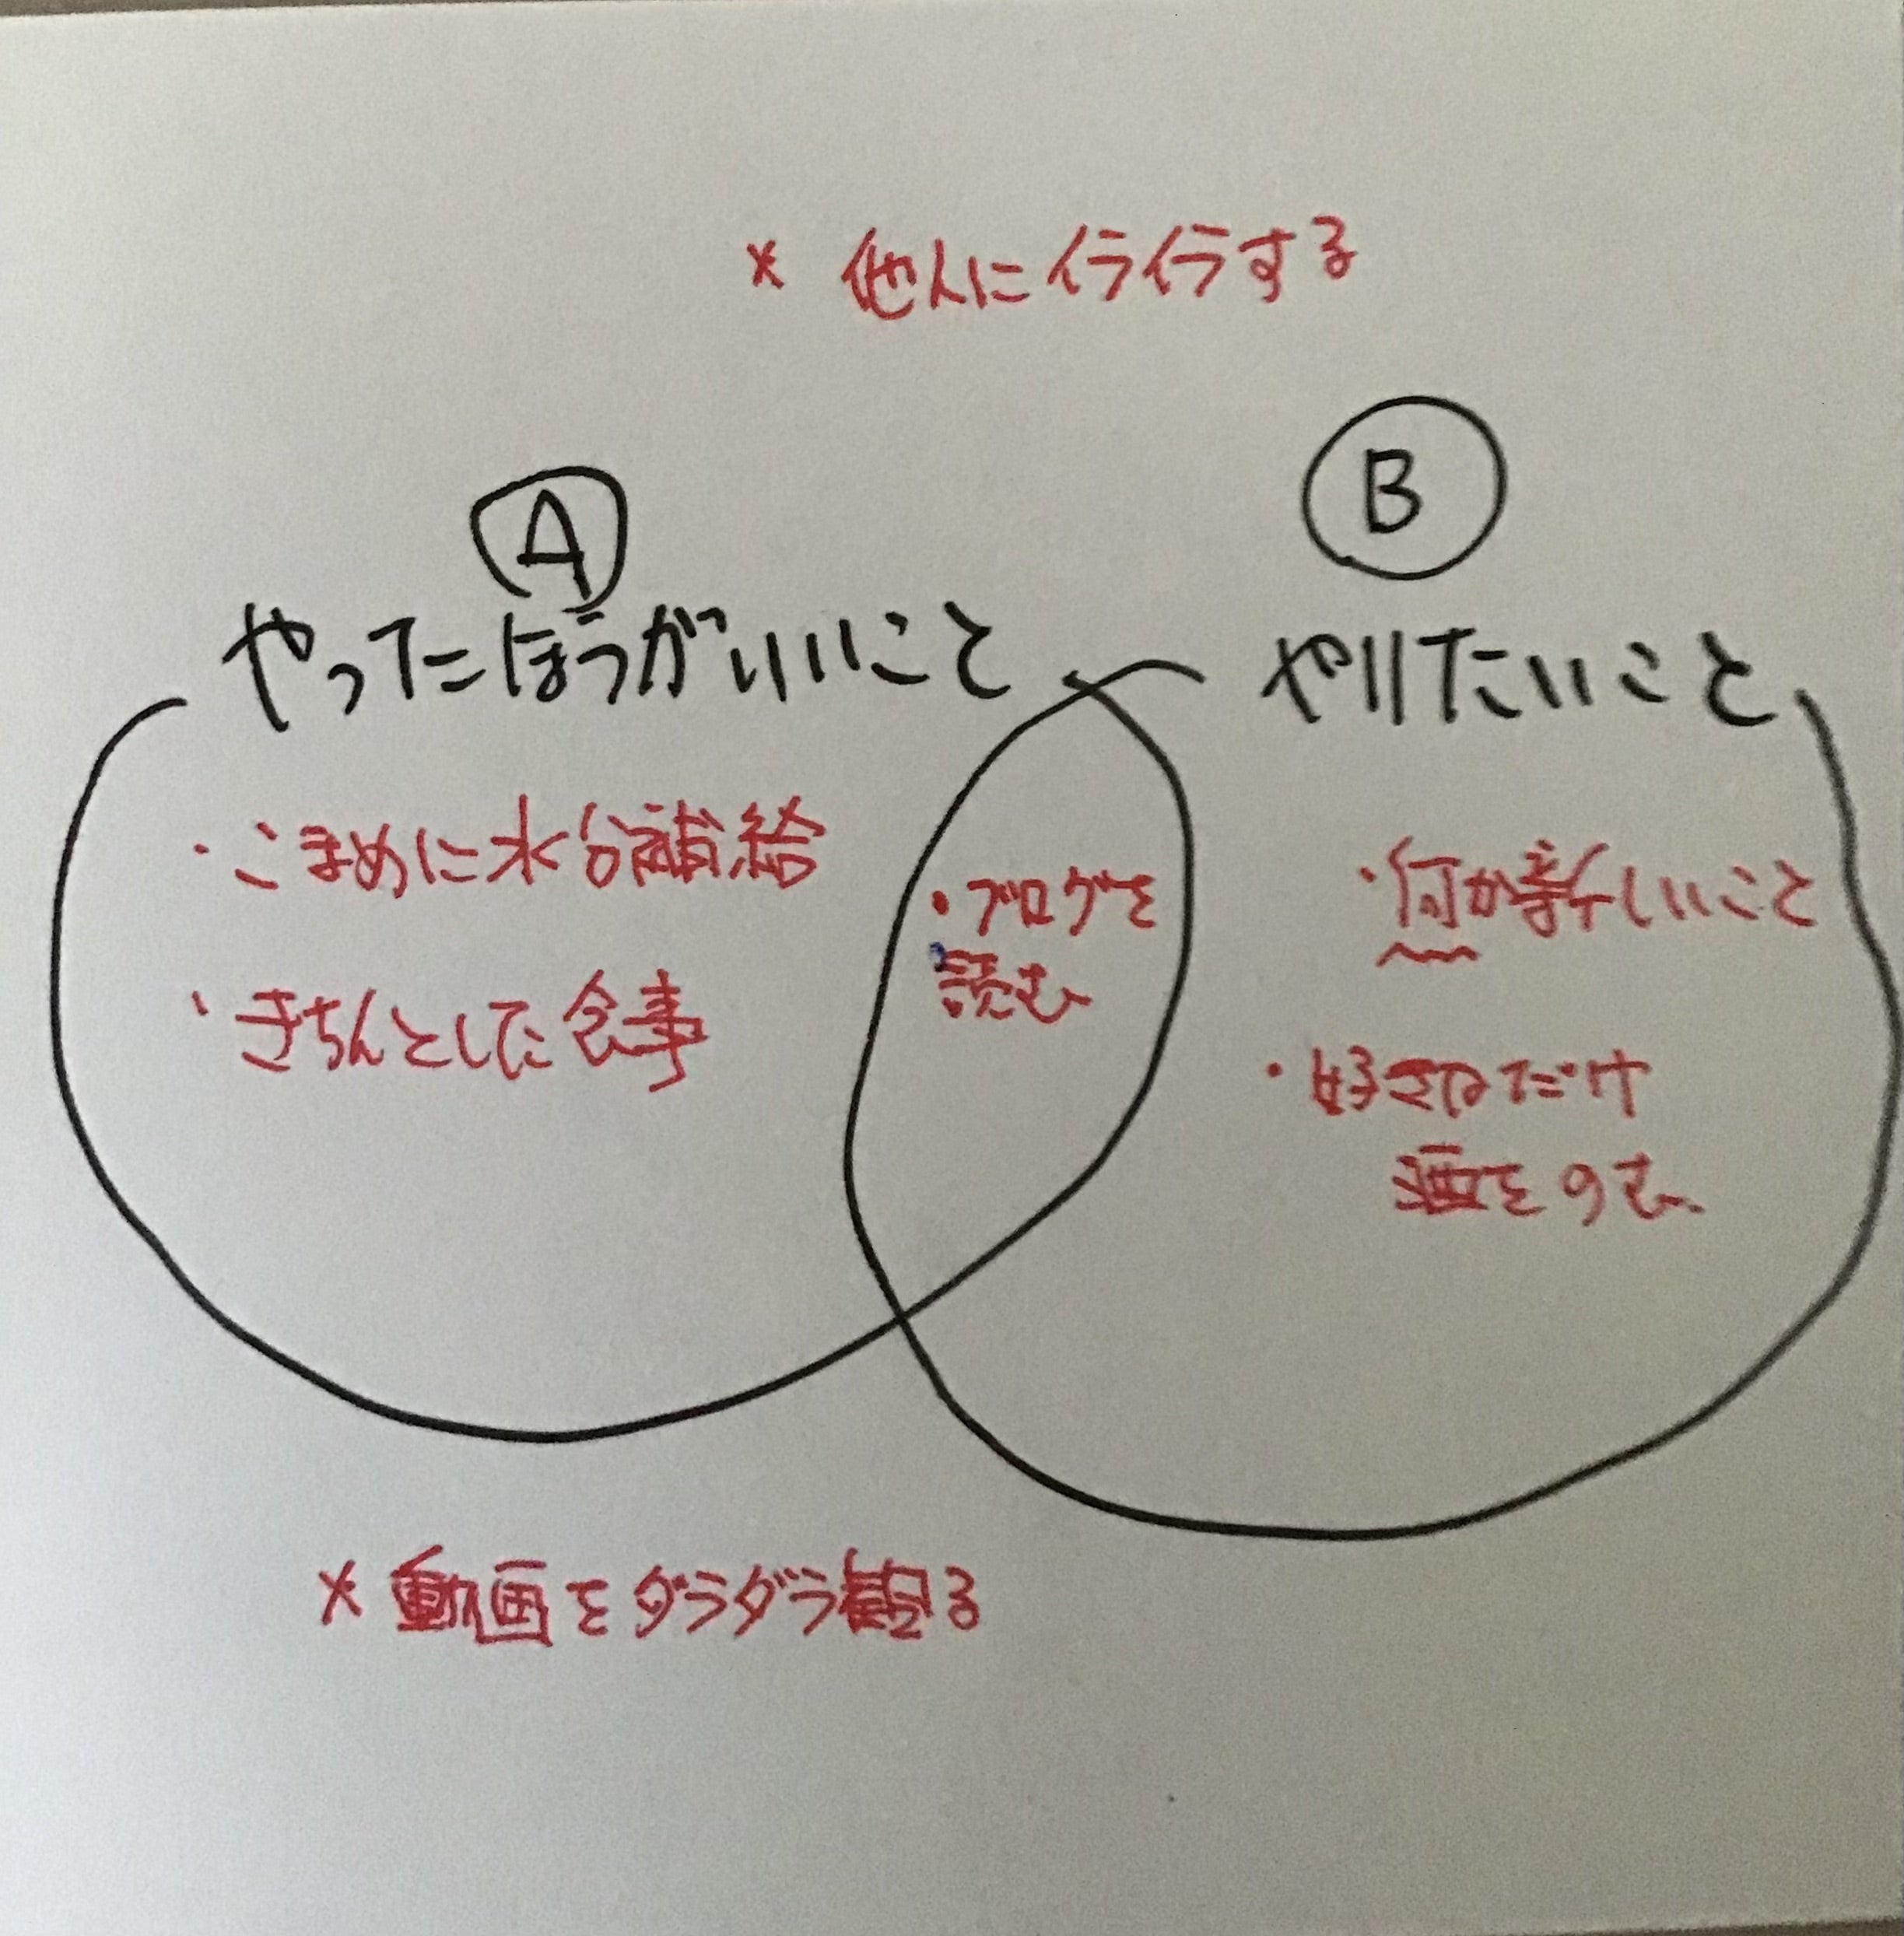 * 他人にイライラする
A
B
やってたほうがいいこと
やりたいこと
・こまめに水分補給
・きちんとした食事
・ブログを
読む
・何か新しいこと
・好きなだけ
酒をのむ
* 動画をダラダラ観る